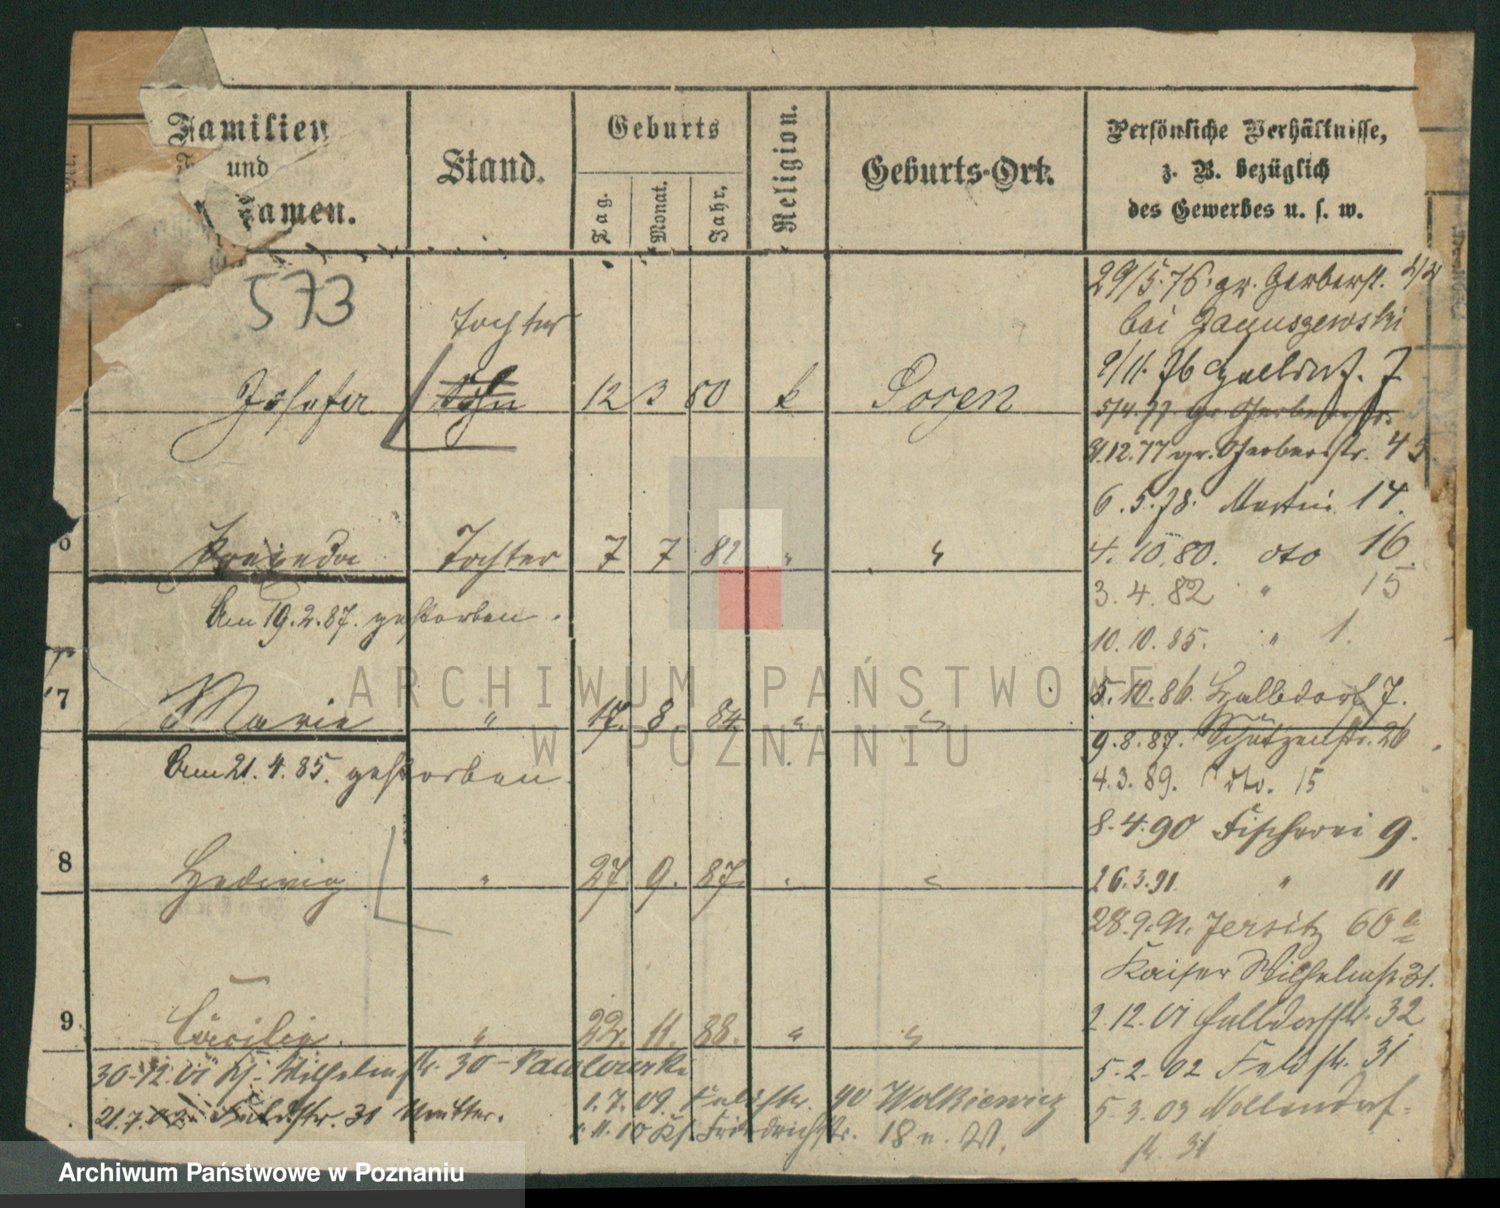 Familien
und
Namen.
Stand.
Geburts
Tag.
Monat.
Jahr.
Religion.
Geburts-Ort.
Persönliche Verhältnisse,
z. B. bezüglich
des Gewerbes u. s. w.
573
Tochter
Josefa Sohn 12 3 80 k Posen
29/5.76. gr. Gerberst.
bei Januszewski
9/11. 76 Halbdorf. 7
5/4.77 Gr Gerberstr.
31.12.77 gr. Gerberstr. 43
6.5.78. Martin 14.
6 Praxeda Tochter 7 7 82 " "
4.10.80. dto 16
3.4.82 " 15
Am 19.2.87. gestorben.
10.10.85. " 1.
7 Marie " 17. 8 84 " "
5.10.86. Halbdorf 7.
9.8.87. Schützenstr. 26
Am 21.4.85. gestorben.
4.3.89. dto. 15
8.4.90 Fischerei 9.
8 Hedwig " 27. 9. 87. " "
26.3.91 " 11
28.9.91. Jersitz 60a
Kaiser Wilhelmstr. 31.
9 Cäcilie. " 22. 11. 88. " "
2.12.01 Halbdorfstr. 32
30-12.01 Ks. Wilhelmstr. 30 - Pawlowski
5-2-02 Feldstr. 31
21.7.02 Feldstr. 31 Mutter.
1.7.09. Feldstr. 40 Wolkiewicz
5 3.03 Nollendorf-
str. 31
" 11.10 Ks. Friedrichstr. 18 n. W.
ARCHIWUM PAŃSTWOWE
W POZNANIU
Archiwum Państwowe w Poznaniu